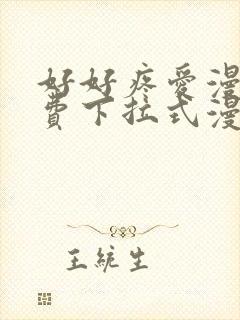 好好疼愛漫
費下拉式漫
王統生